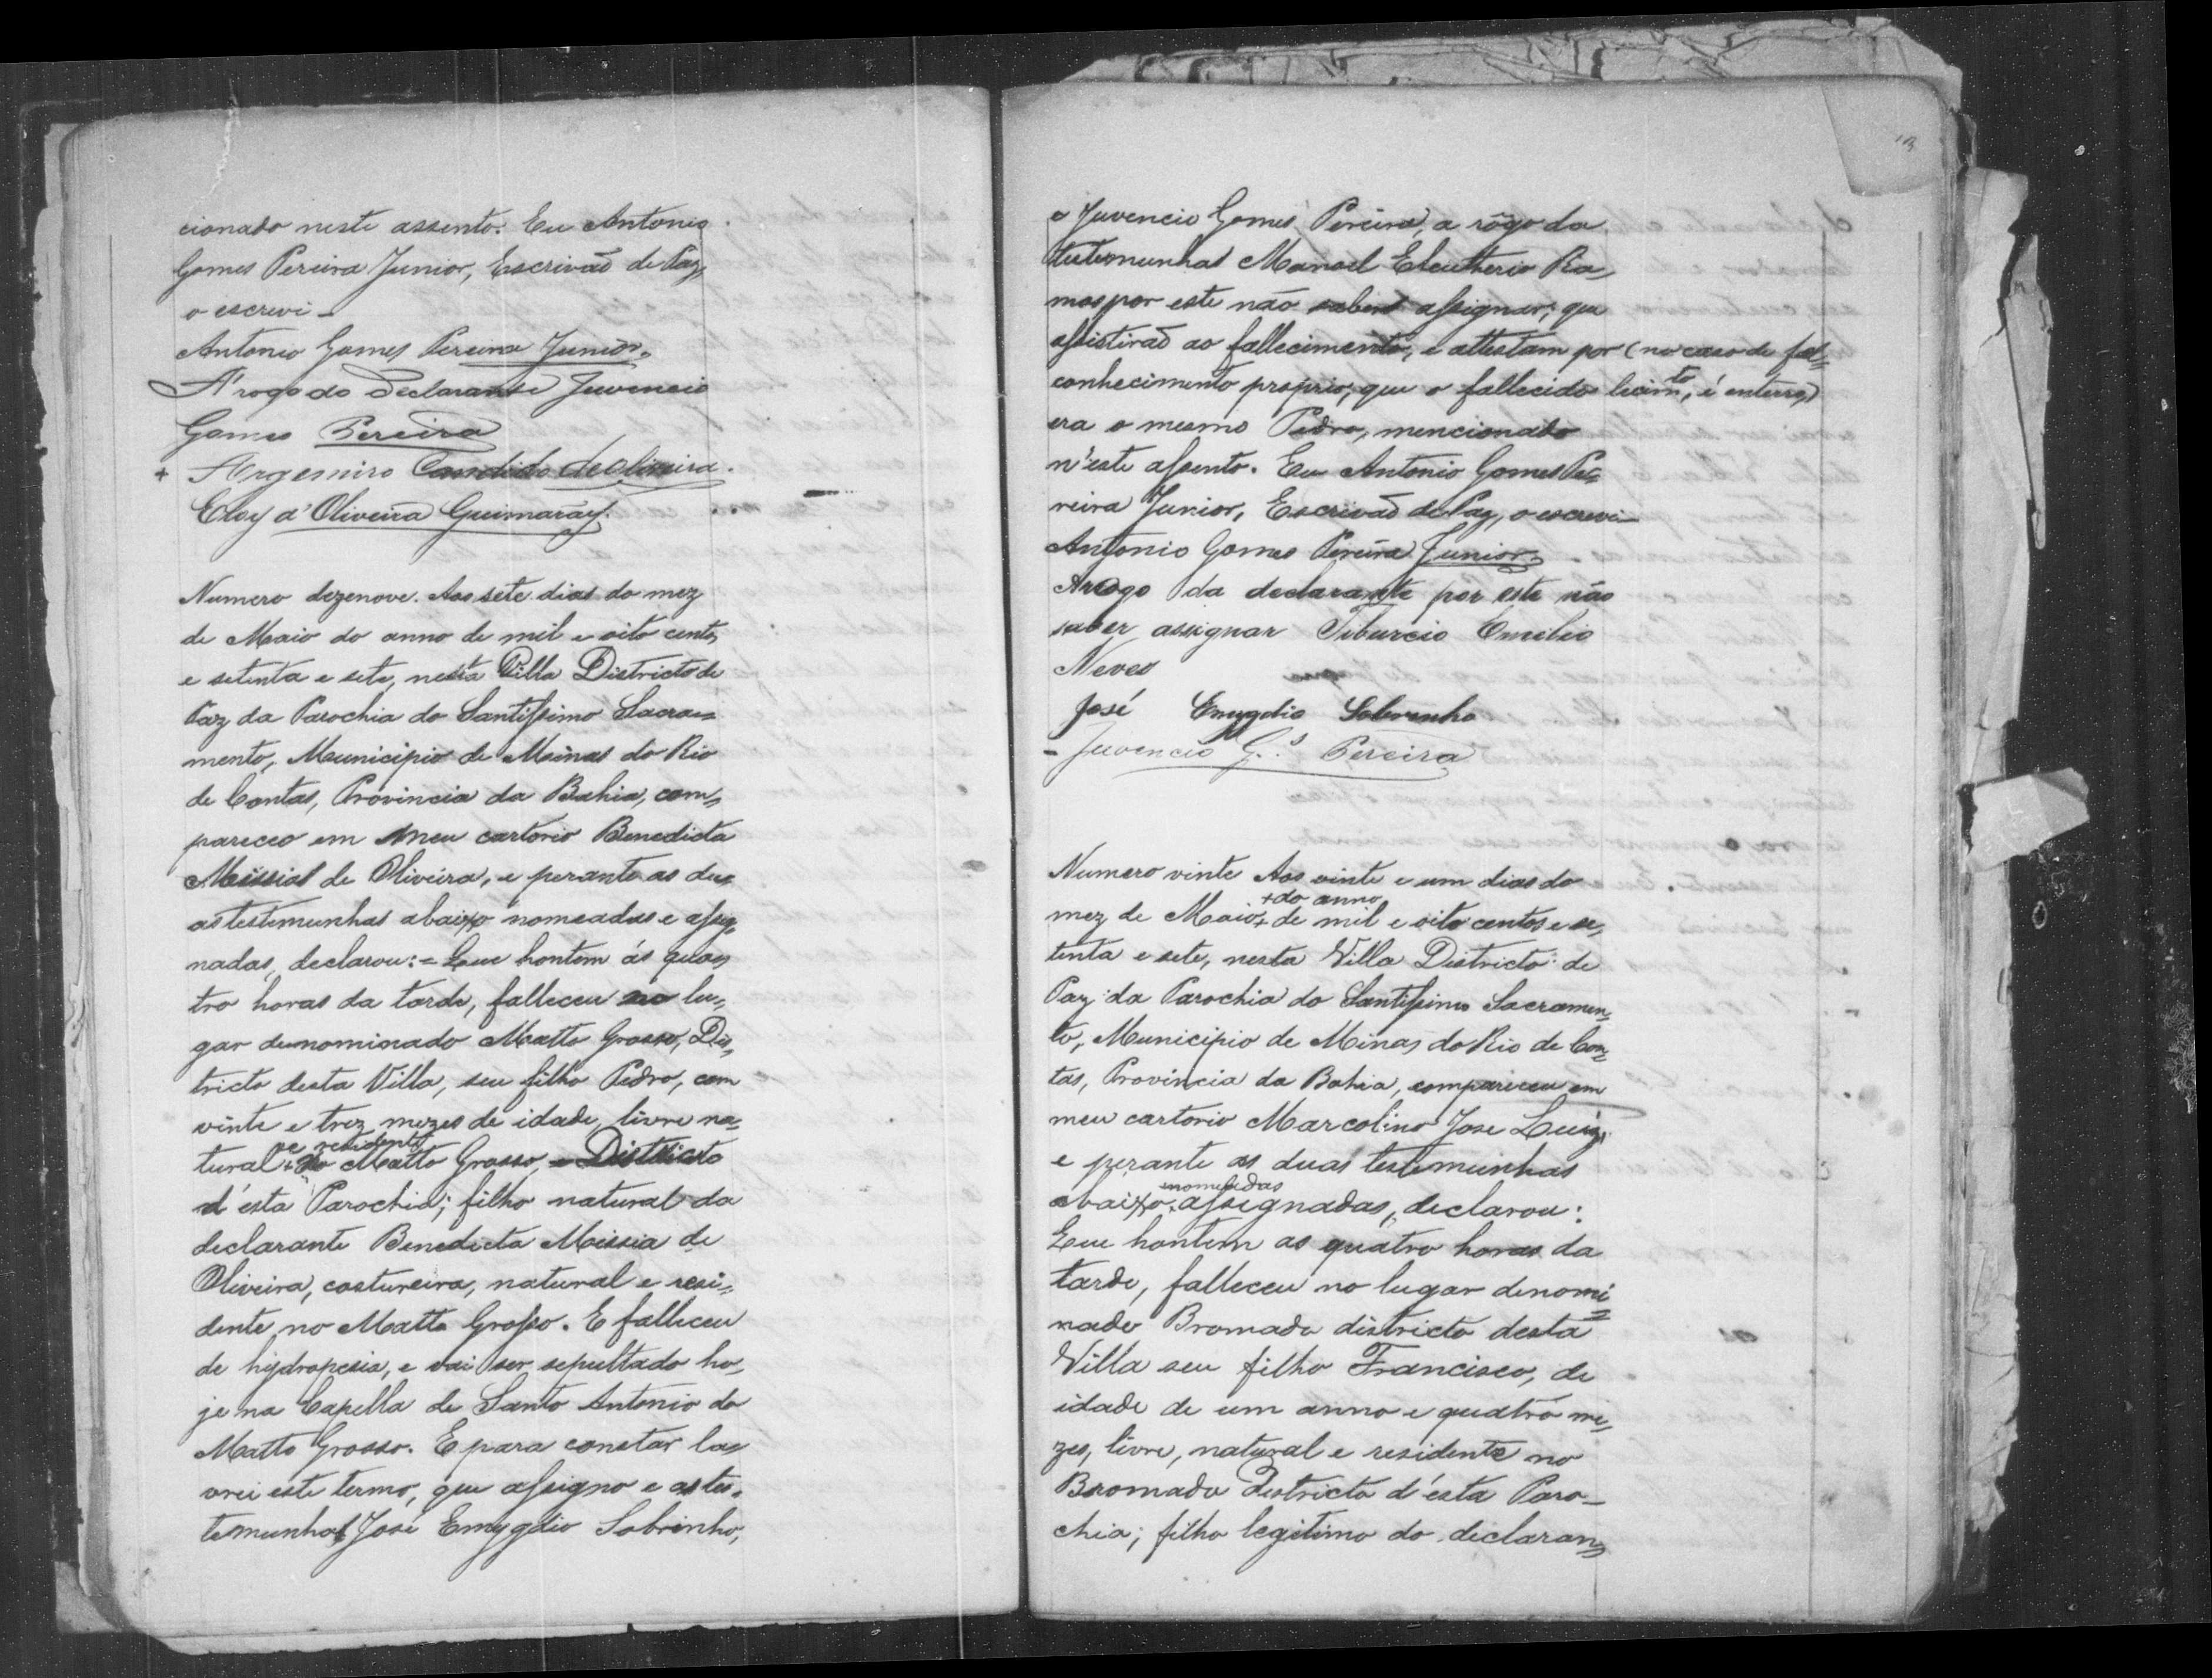 cionado neste assento. Eu Antonio
Gomes Pereira Junior, Escrivaõ de Paz,
o escrevi –
Antonio Gomes Pereira Junior.
A rogo do Declarante Juvencio
Gomes Pereira
+ Argemiro Candido de Oliveira.
Eloy d'Oliveira Guimarães.
Numero dezenove. Aos sete dias do mez
de Maio do anno de mil e oito centos
e setenta e sete, nesta Villa Districto de
Paz da Parochia do Santissimo Sacra=
mento, Municipio de Minas do Rio
de Contas, Provincia da Bahia, com=
pareceo em meu cartorio Benedicta
Missias de Oliveira, e perante as du=
as testemunhas abaixo nomeadas e assig=
nadas, declarou: = Que hontem ás qua=
tro horas da tarde, falleceu no lu=
gar denominado Matto Grosso, Dis=
tricto desta Villa, seu filho Pedro, com
vinte e trez mezes de idade, livre na=
e residente
tural + do Matto Grosso, Districto
d'esta Parochia; filho natural da
declarante Benedicta Missia de
Oliveira, costureira, natural e resi=
dente no Matto Grosso. E falleceu
de hydropesia, e vai ser sepultado ho=
je na Capella de Santo Antonio do
Matto Grosso. E para constar la=
vrei este termo, que assigno e as tes=
temunhas José Emygdio Sobrinho,
13
e Juvencio Gomes Pereira, a rôgo da
testemunhas Manoel Eleutherio Ra=
mos por este não saber assignar; que
assistiraõ ao fallecimento, e attestam por (no caso de fal=
conhecimento proprio, que o fallecido lecimto, é enterro)
era o mesmo Pedro, mencionado
n'este assento. Eu Antonio Gomes Pe=
reira Junior, Escrivaõ de Paz, o escrevi –
Antonio Gomes Pereira Junior
Arogo da declarante por esta não
saber assignar Tiburcio Emilio
Neves
José Emygdio Sobrinho
– Juvencio G.s Pereira
Numero vinte Aos vinte e um dias do
+ do anno
mez de Maio + de mil e oito centos e se=
tenta e sete, nesta Villa Districto de
Paz da Parochia do Santissimo Sacramen=
to, Municipio de Minas do Rio de Con=
tas, Provincia da Bahia, compareceu em
meu cartorio Marcolino Jose Luiz,
e perante as duas testemunhas
e nomeadas
abaixo assignadas, declarou:
Que hontem as quatro horas da
tarde, falleceu no lugar denomi=
nado Bromado districto desta
Villa seu filho Francisco, de
idade de um anno e quatro me=
zes, livre, natural e residente no
Bromado Districto d'esta Paro–
chia; filho legitimo do declaran=